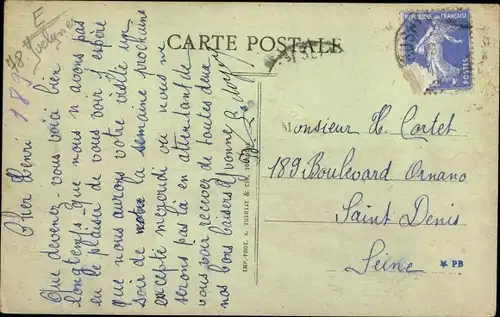 E
78
Yvelynes
189
CARTE POSTALE
REPUBLIQUE FRANÇAISE
POSTES
Cher Henri
Que devenez vous voici bien
longtemps que nous n avons pas
eu le plaisir de vous voir j espère
que nous aurons votre visite un
soir de la semaine prochaine
excepté mercredi ou nous ne
serons pas là en attendant de
vous voir recevez de toutes deux
nos bons baisers Yvonne &
IMP.-PHOT. A. THIRIAT & Cie
Monsieur H. Cortet
189 Boulevard Ornano
Saint Denis
Seine
* PB